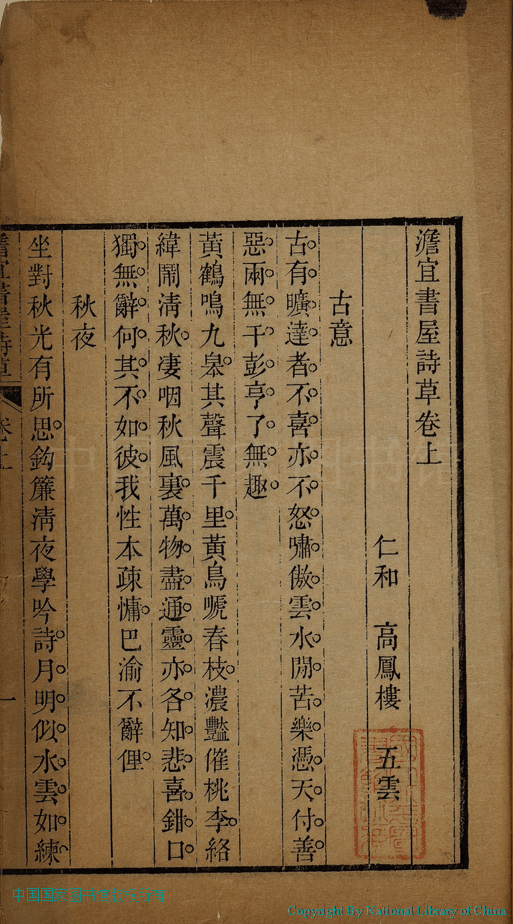 澹宜書屋詩草卷上
仁和　高鳳樓　五雲
古意
古有曠達者不喜亦不怒嘯傲雲水閒苦樂憑天付善
惡兩無干彭亨了無趣
黃鶴鳴九皋其聲震千里黃鳥嗁春枝濃豔催桃李絡
緯鬧清秋淒咽秋風裏萬物盡通靈亦各知悲喜鉗口
獨無辭何其不如彼我性本疎慵巴渝不辭俚
秋夜
坐對秋光有所思鈎簾清夜學吟詩月明似水雲如練
澹宜書屋詩草
卷上
一
Copyright By National Library of China